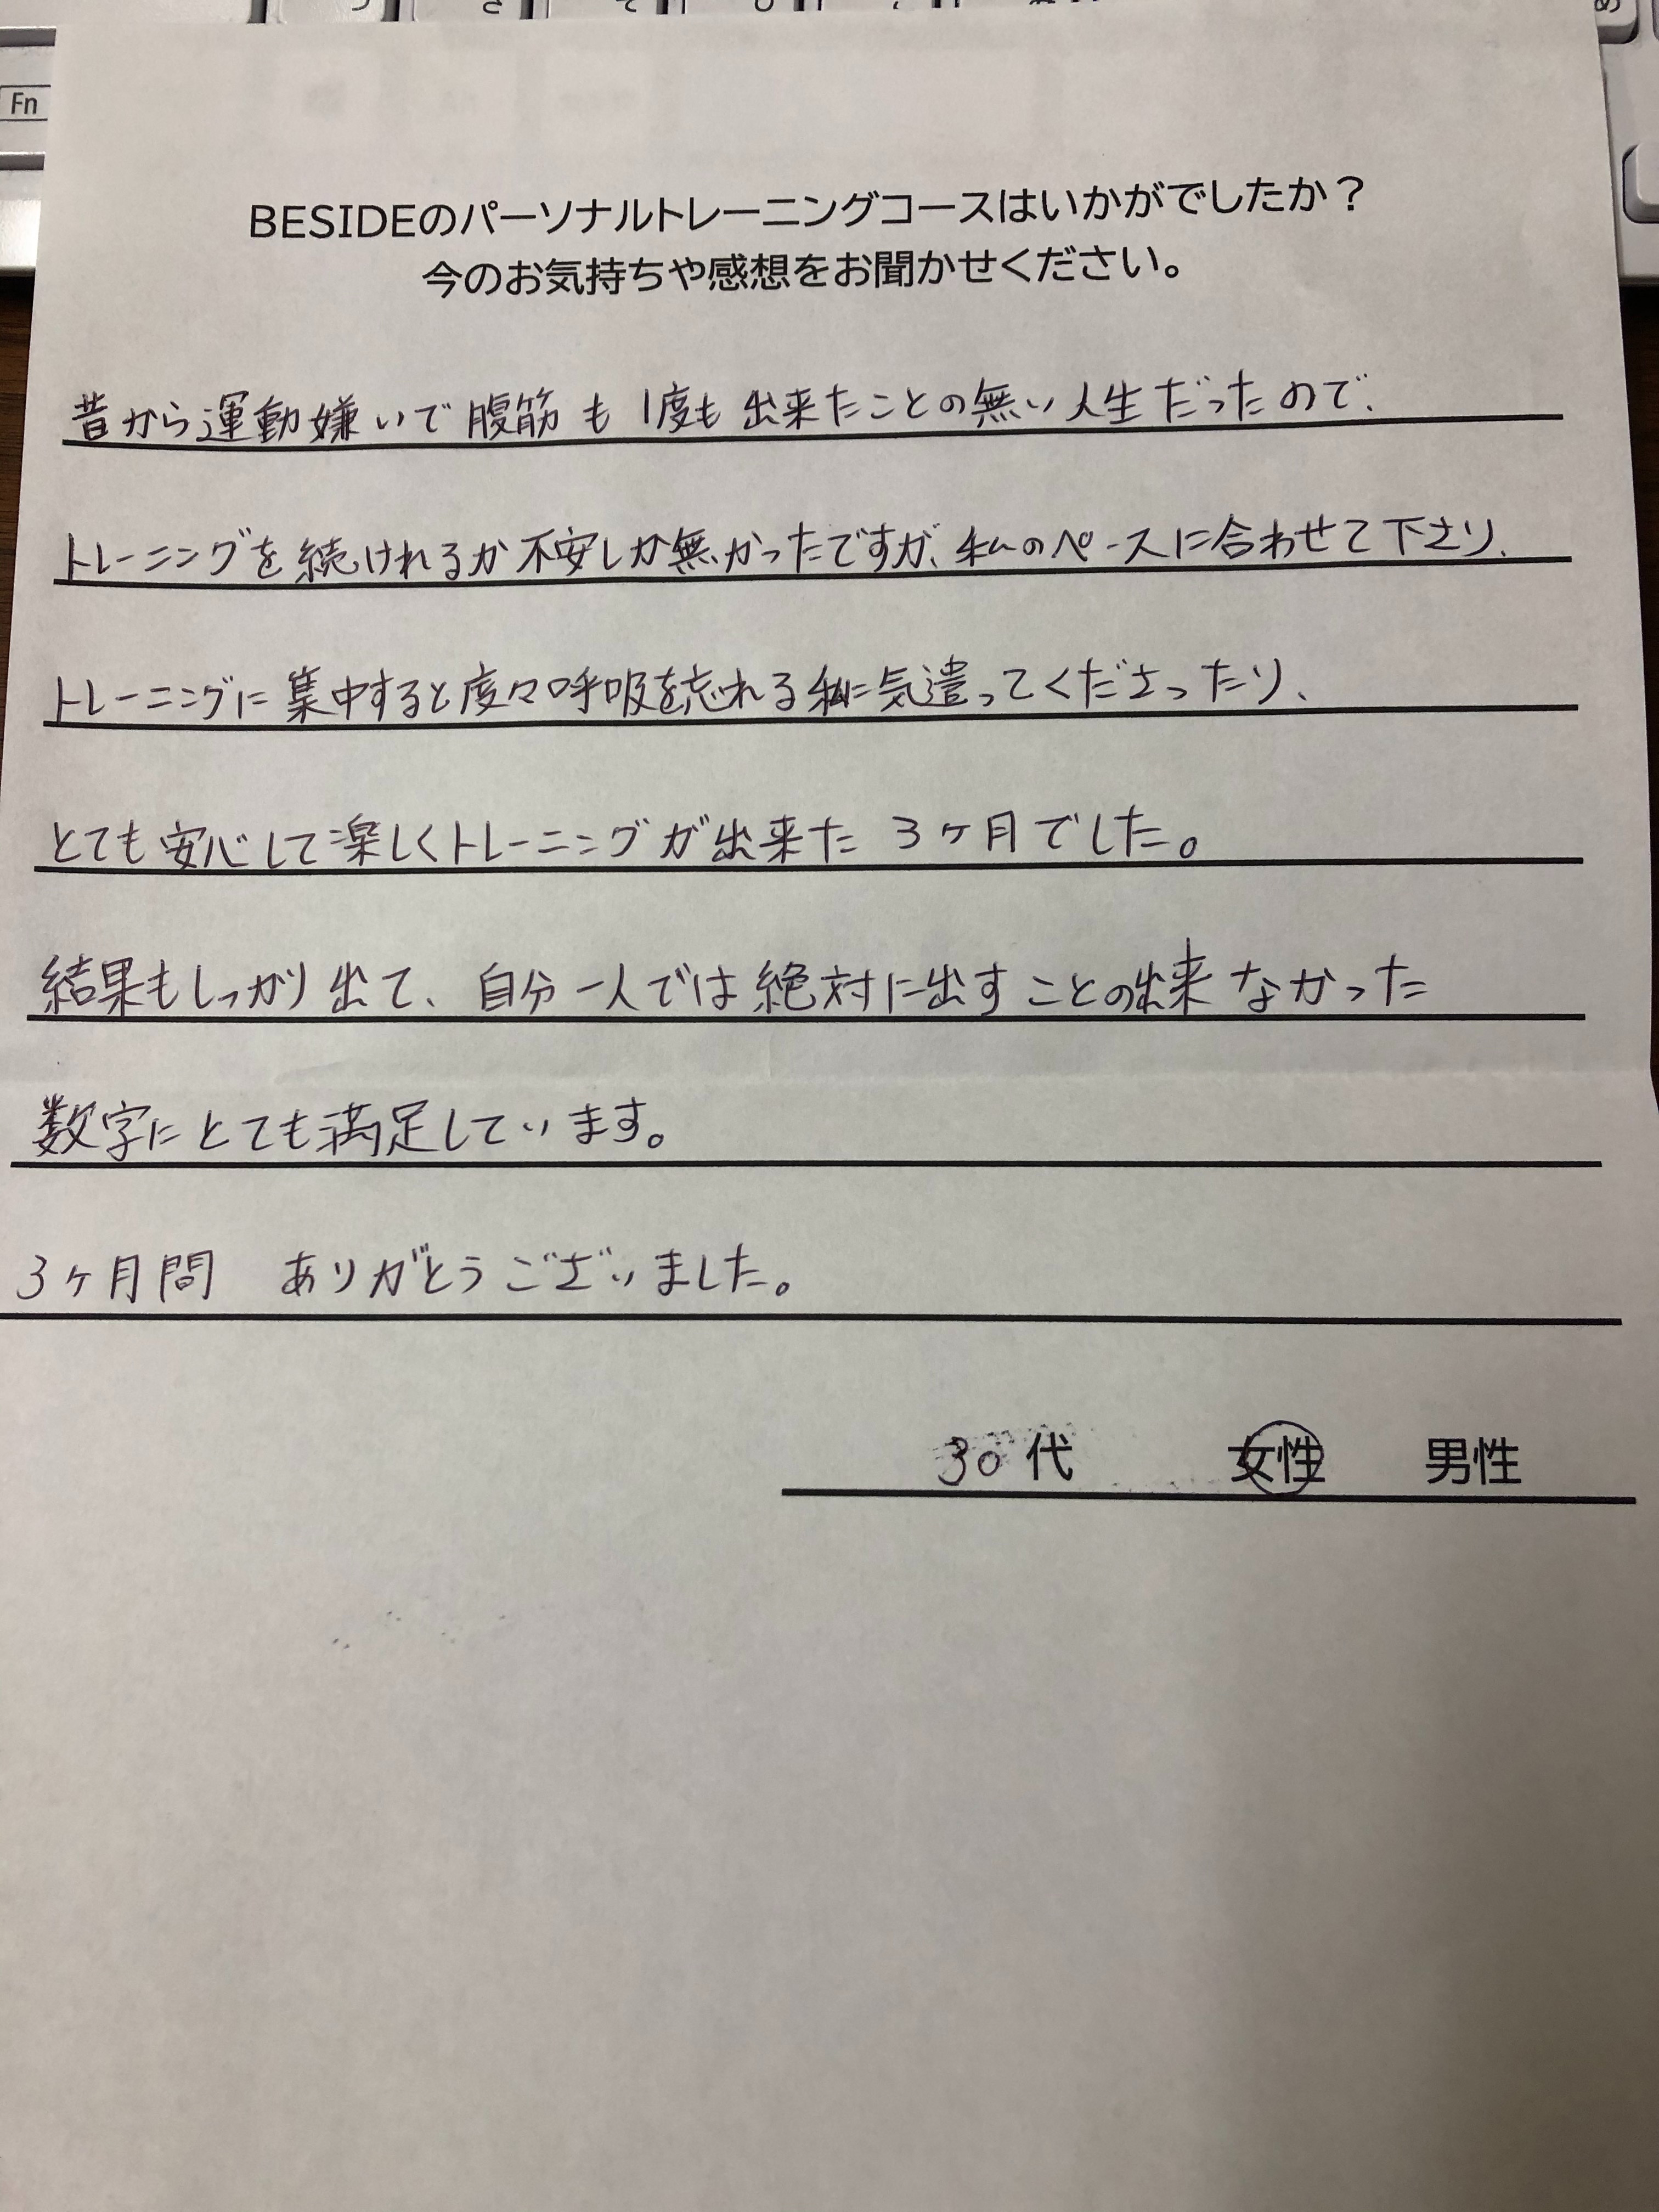 Fn
BESIDEのパーソナルトレーニングコースはいかがでしたか？
今のお気持ちや感想をお聞かせください。
昔から運動嫌いで腹筋も1度も出来たことの無い人生だったので、
トレーニングを続けれるか不安しか無かったですが、私のペースに合わせて下さり、
トレーニングに集中すると度々呼吸を忘れる私に気遣ってくださったり、
とても安心して楽しくトレーニングが出来た3ヶ月でした。
結果もしっかり出て、自分一人では絶対に出すことの出来なかった
数字にとても満足しています。
3ヶ月間 ありがとうございました。
30代 女性 男性